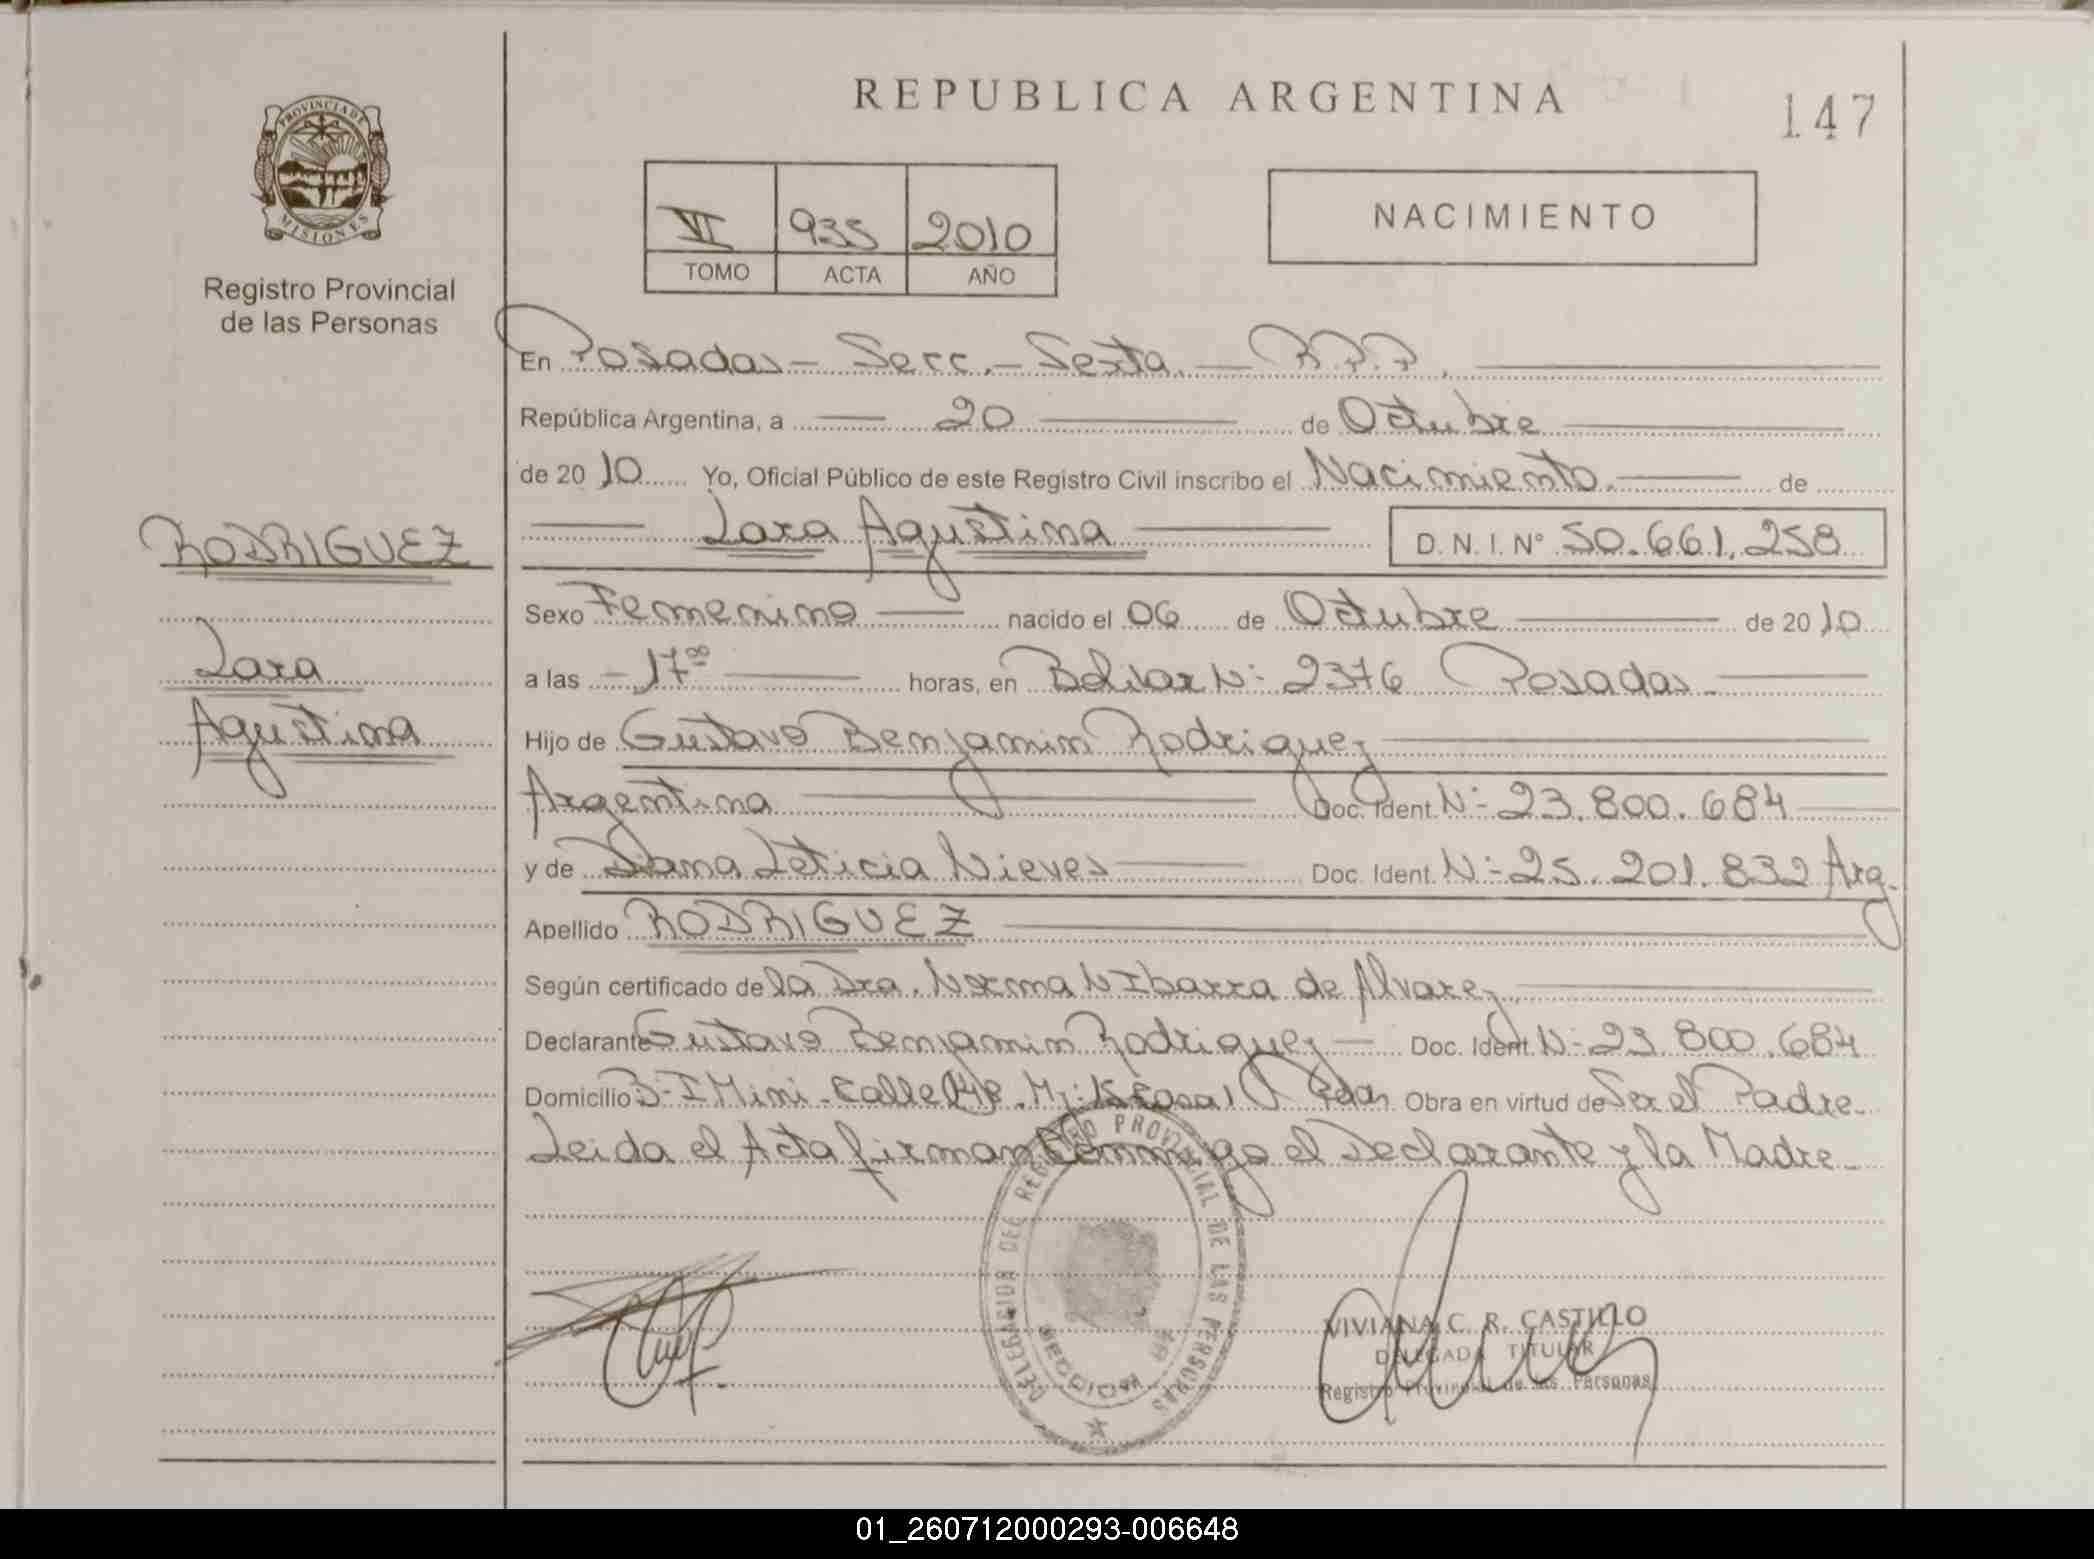 REPUBLICA ARGENTINA
147
PROVINCIA DE
MISIONES
Registro Provincial
de las Personas
VI 935 2010
TOMO ACTA AÑO
NACIMIENTO
En Posadas - Secc. - Sexta. - R.P.P.
República Argentina, a 20 de Octubre
de 2010 Yo, Oficial Público de este Registro Civil inscribo el Nacimiento. de
Lara Agustina D. N. I. N° 50.661.258
RODRIGUEZ
Lara
Agustina
Sexo Femenino nacido el 06 de Octubre de 2010
a las - 17⁰⁰ horas, en Bolivar N: 2376 Posadas
Hijo de Gustavo Benjamin Rodriguez
Argentina Doc. Ident. N: 23.800.684
y de Diana Leticia Nieves Doc. Ident. N: 25.201.832 Arg.
Apellido RODRIGUEZ
Según certificado de la Dra. Norma N Ibarra de Alvarez
Declarante Gustavo Benjamin Rodriguez Doc. Ident. N: 23.800.684
Domicilio Calle Obra en virtud de Ser el Padre.
Leida el Acta firman Conmigo el Declarante y la Madre.
DELEGACION DEL REGISTRO PROVINCIAL DE LAS PERSONAS
SECCION 6ª
VIVIANA C. R. CASTILLO
DELEGADA TITULAR
Registro Provincial de las Personas
01_260712000293-006648